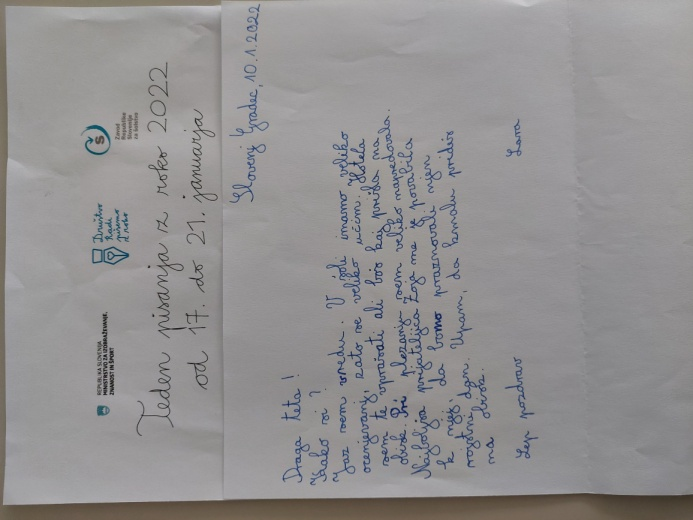 REPUBLIKA SLOVENIJA
MINISTRSTVO ZA IZOBRAŽEVANJE,
ZNANOST IN ŠPORT
Društvo
Radi
pišemo
z roko
Zavod
Republike
Slovenije
za šolstvo
Teden pisanja z roko 2022
od 17. do 21. januarja
Slovenj Gradec, 10.1.2022
Draga teta!
Kako si?
Jaz sem vredu. V šoli imamo veliko
ocenjevanj, zato se veliko učim. Hotela
sem te vprašati ali boš kaj prišla na
obisk. Pri plezanju sem veliko napredovala.
Najboljša prijateljica Zoja me je povabila
k njej, da bomo praznovali njen
rojstni dan. Upam, da kmalu prideš
na obisk.
Lep pozdrav
Lara